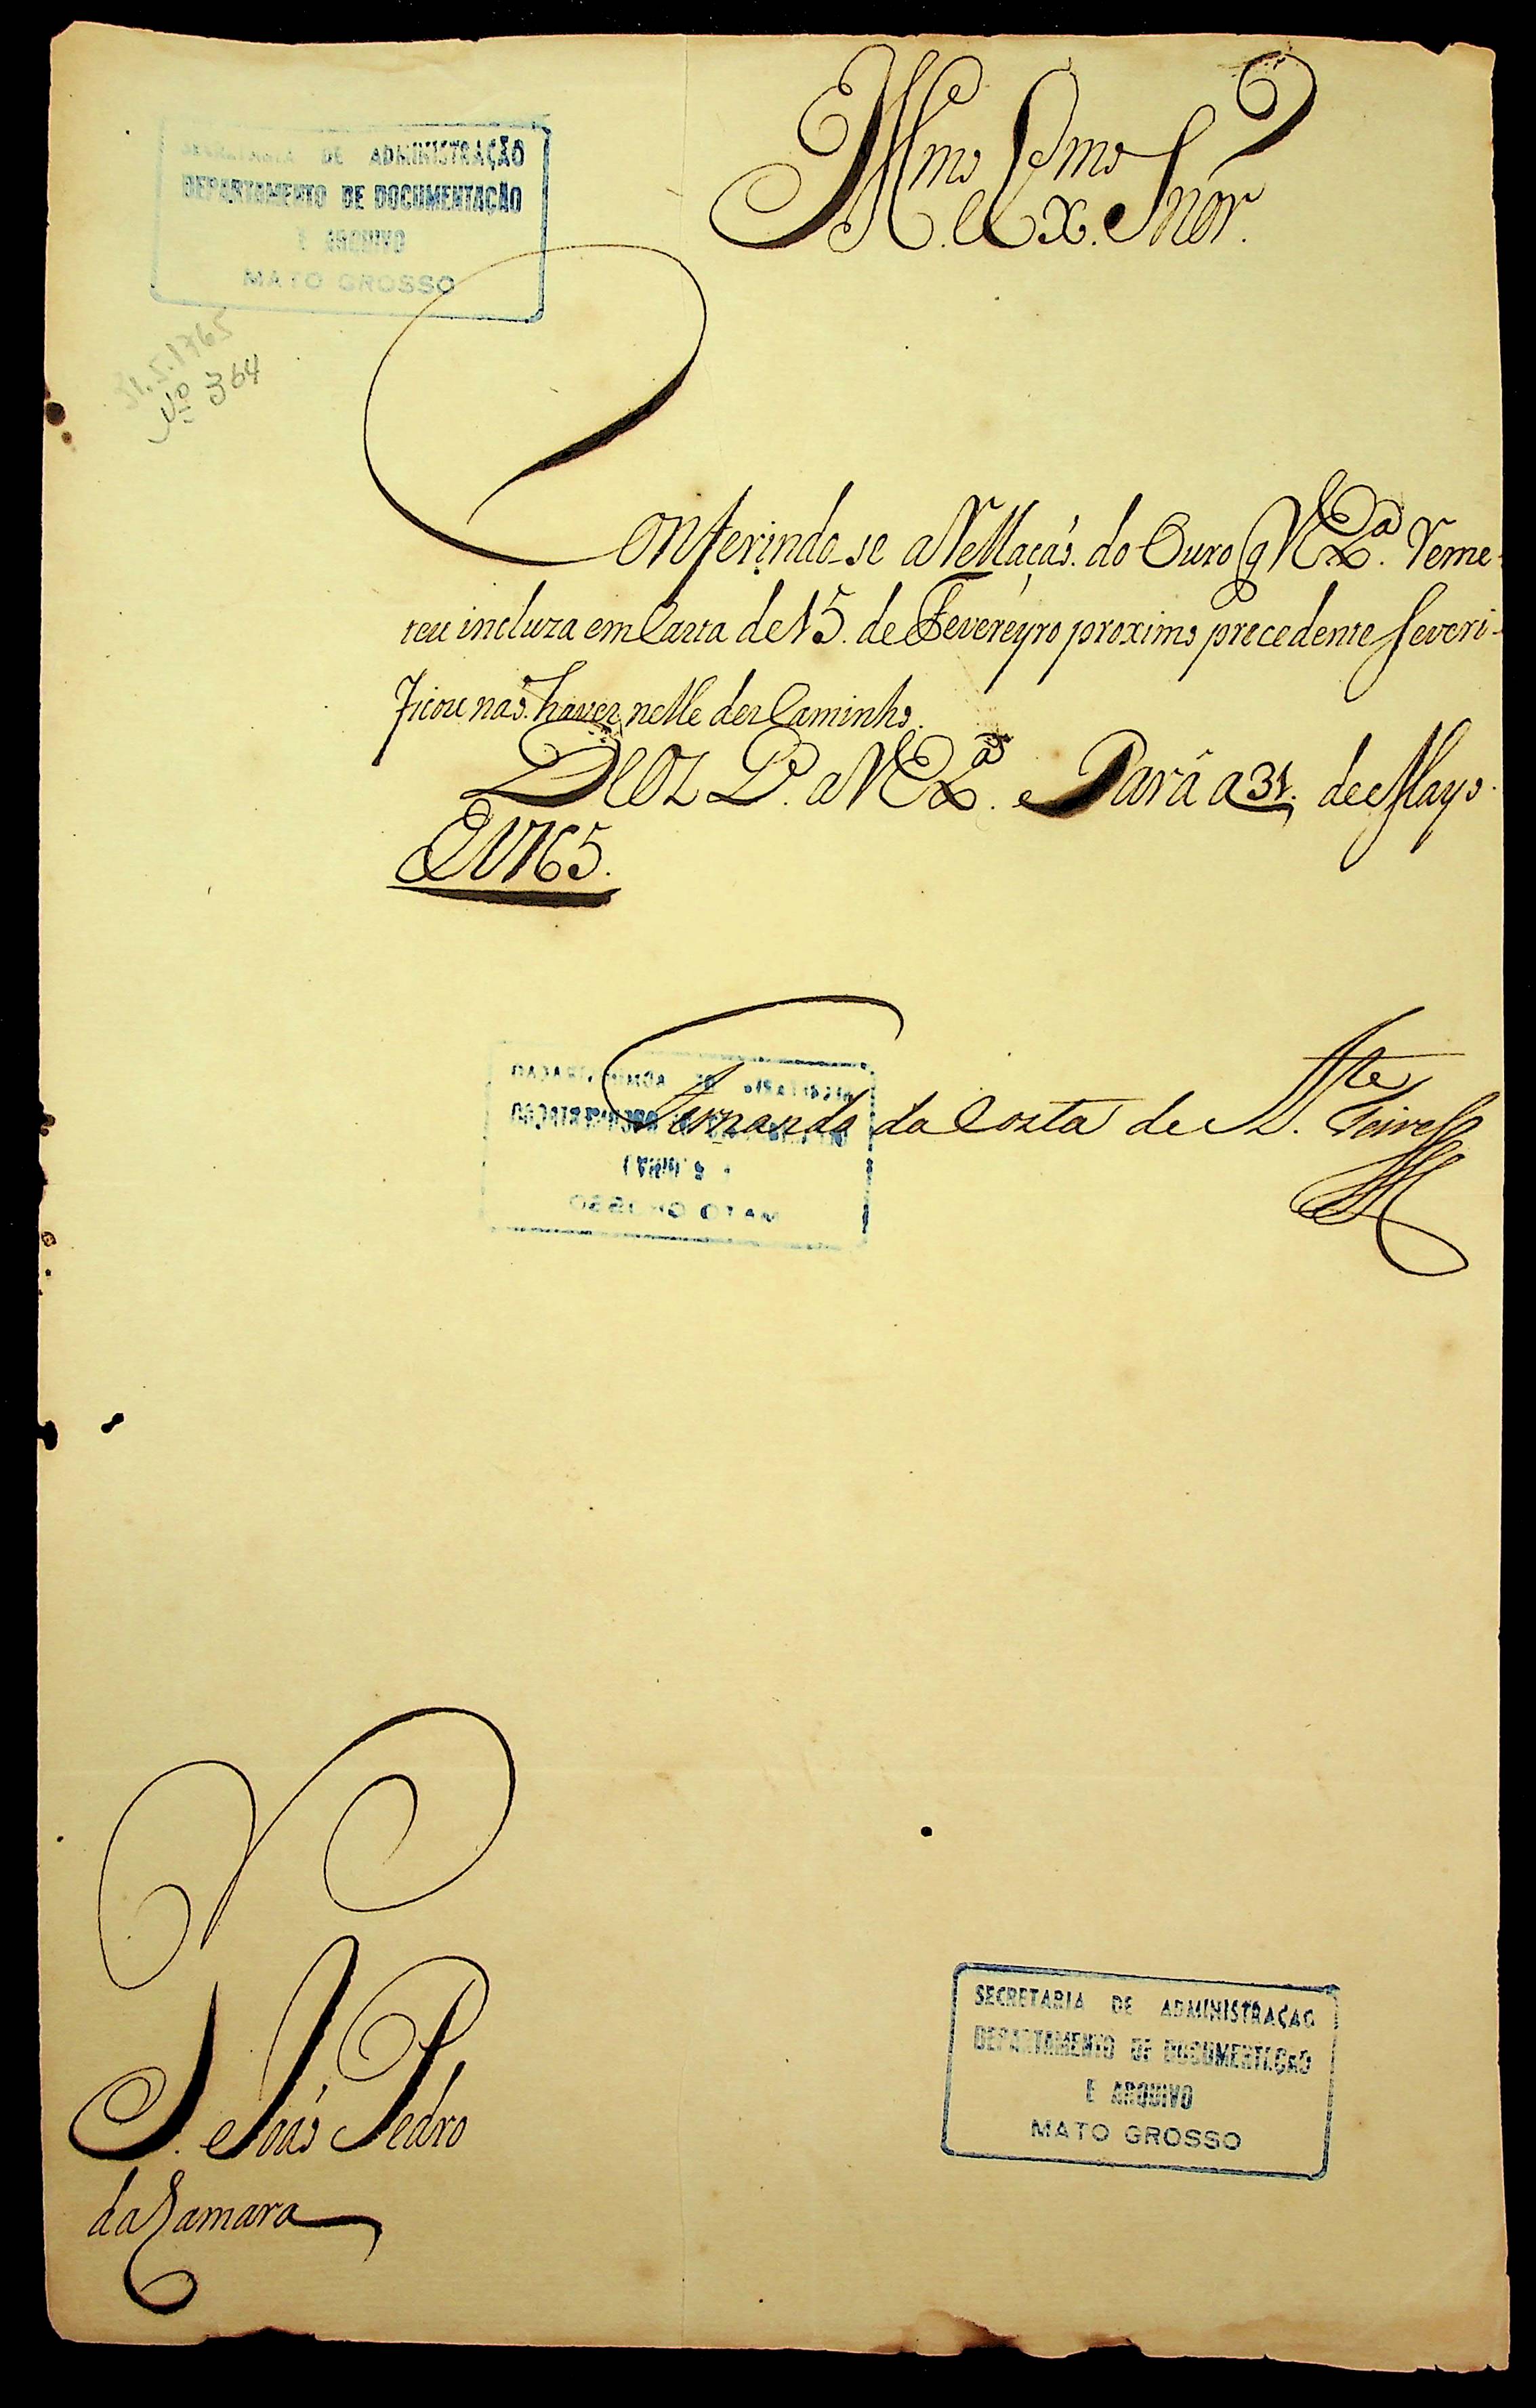 SECRETARIA DE ADMINISTRAÇÃO
DEPARTAMENTO DE DOCUMENTAÇÃO
E ARQUIVO
MATO GROSSO
31.5.1765
Nº 364
Illmo. e Exmo. Snor.
Conferindo-se a Rellaçaõ. do Ouro q V Exª. reme-
teu incluza em Carta de 15. de Fevereyro proximo precedente se veri-
ficou naõ haver nelle descaminho.
Deos G. a V Exª. Pará a 31. de Mayo
de 1765.
Fernando da Costa de Atte Teive
SECRETARIA DE ADMINISTRAÇÃO
DEPARTAMENTO DE DOCUMENTAÇÃO
E ARQUIVO
MATO GROSSO
S. Joaõ Pedro
da Camara
SECRETARIA DE ADMINISTRAÇAO
DEPARTAMENTO DE DOCUMENTAÇÃO
E ARQUIVO
MATO GROSSO